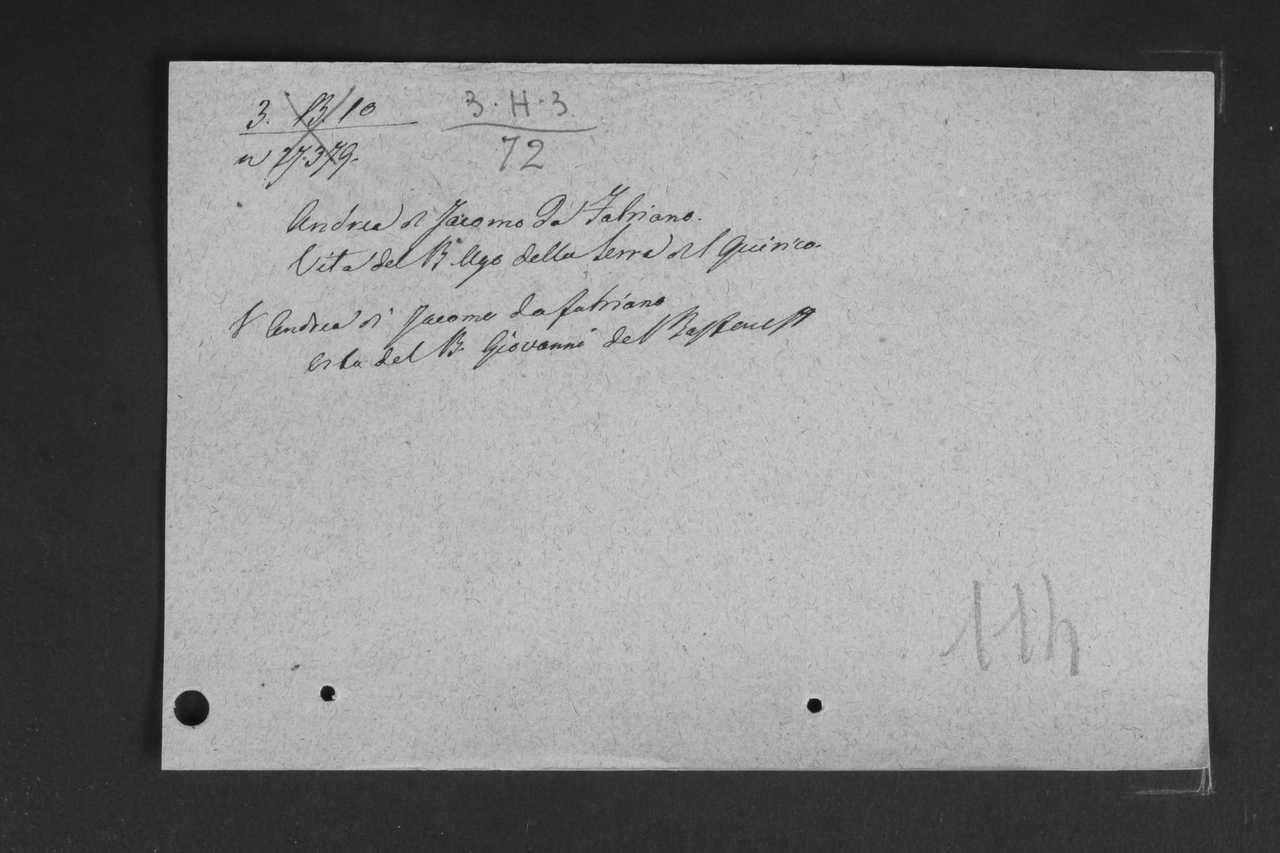 3. B/10
n 27.379.
3·H·3
72
Andrea di Jacomo da Fabriano.
Vita del B. Ugo della Serra di S Quirico.
V Andrea di Jacomo da Fabriano
Vita del B. Giovanni del
114